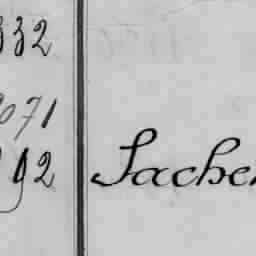 332
071
92 Sacher